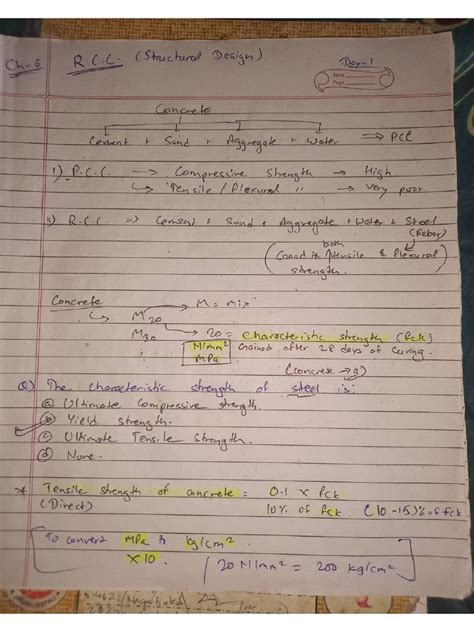 Ch-6 R.C.C. (Structural Design)
Day-1
Date
Page
Concrete
Cement + Sand + Aggregate + Water ⇒ PCC
i) P.C.C. → Compressive Strength → High
↳ Tensile / Flexural " → Very poor.
ii) R.C.C. ⇒ Cement + Sand + Aggregate + Water + Steel
(Rebar)
both
(Good in tensile & Flexural)
strength.
Concrete
↳ M20 → M = mix
M30 → 20 = characteristic strength (fck)
N/mm² Gained after 28 days of curing.
MPa
(concrete → a)
Q) The characteristic strength of steel is:
(a) Ultimate compressive strength.
(b) Yield strength.
(c) Ultimate Tensile Strength.
(d) None.
* Tensile strength of concrete = 0.1 × fck
(Direct) 10% of fck (10-15)% of fck
To convert MPa to kg/cm².
×10. / 20 N/mm² = 200 kg/cm²